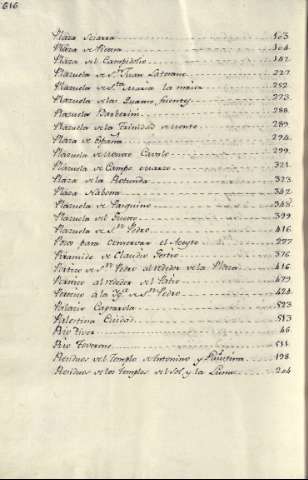 616
Plaza Sciarra 103
Plaza de Pietra 104
Plaza del Campidolio 162
Plazuela de Sn. Juan Laterano 227
Plazuela de Sta. Maria la maior 252
Plazuela de las Quatro fuentes 273
Plazuela Barberini 288
Plazuela de la Trinidad de monte 289
Plaza de España 294
Plazuela de monte Cavalo 299
Plazuela de Campo marzo 321
Plaza de la Rotunda 323
Plaza Nabona 342
Plazuela de Pasquino 348
Plazuela del 399
Plazuela de Sn. Pedro 416
Pozo para conservar el Aceyte 277
Piramide de Claudio 376
Portico de Sn. Pedro alrededor de la Plaza 416
Portico alrededor del Patio 479
Portico a la Yga. de Sn. Pedro 424
Palacio Caprarola 523
Palestina Ciudad 513
Rio Tiver 46
Rio Teverone 511
Residuos del Templo de Antonino y Faustina 198
Residuos de los Templos del Sol, y la Luna 204